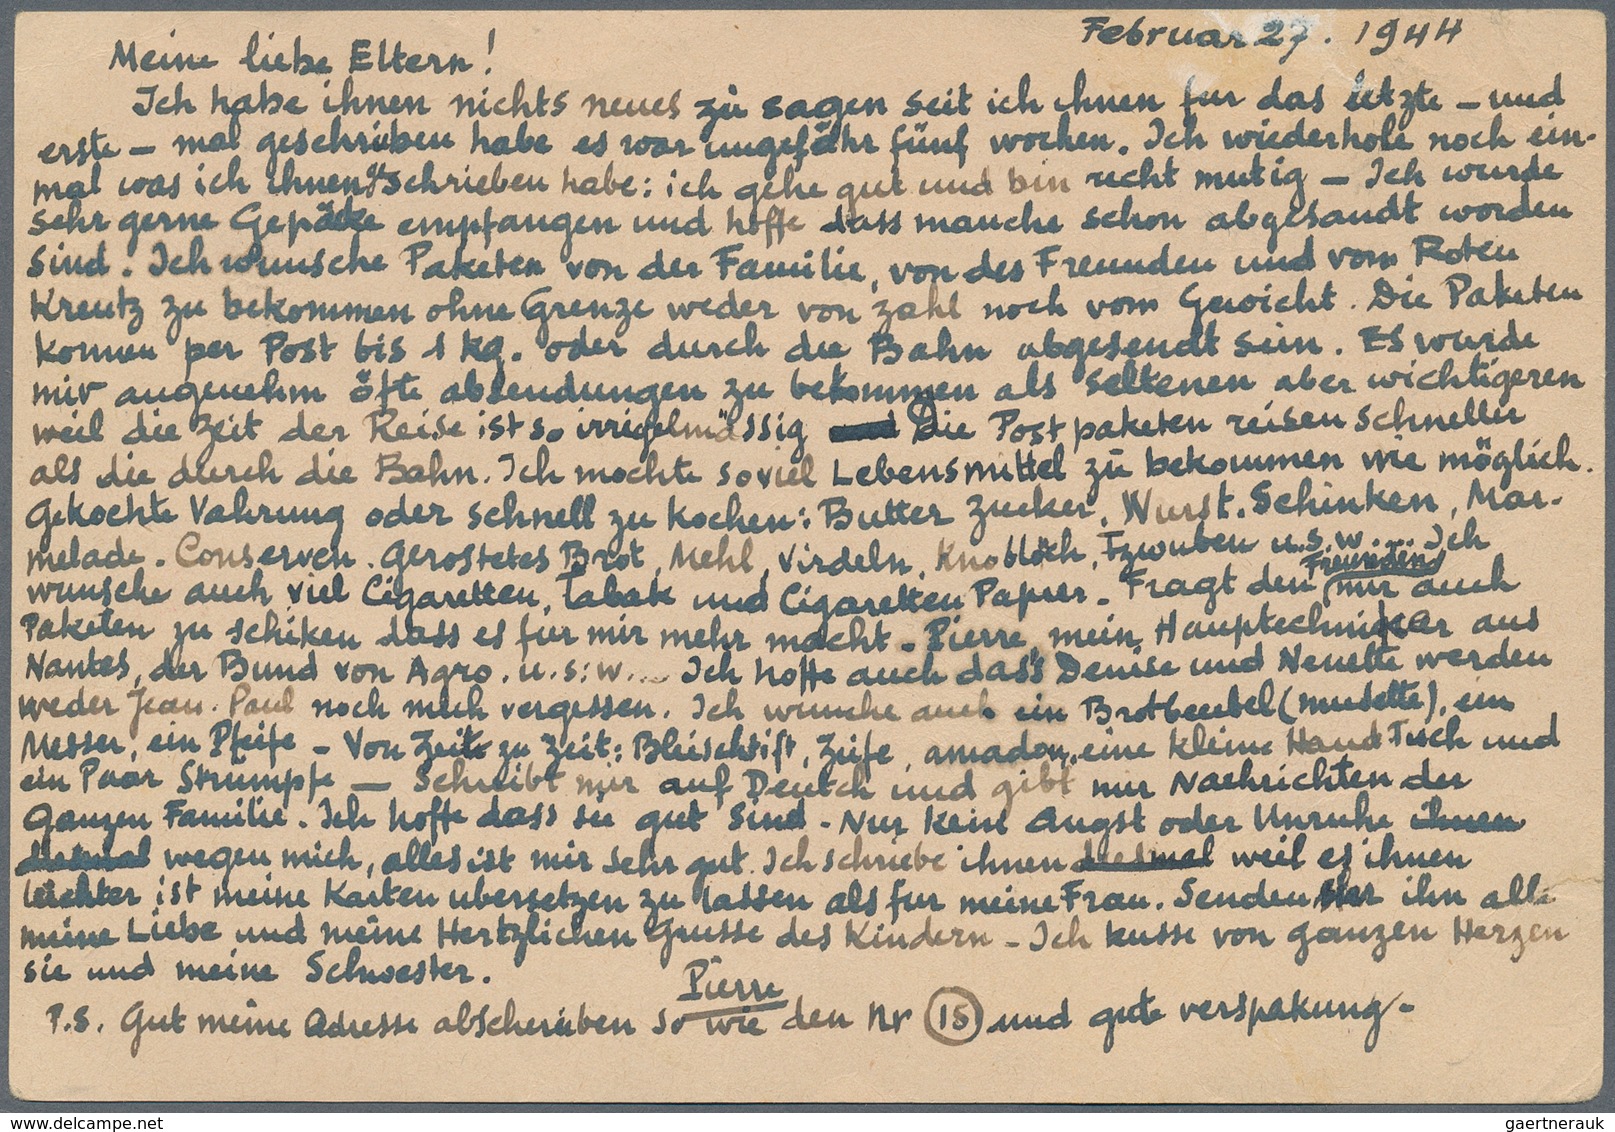 Februar 27. 1944
Meine liebe Eltern!
Ich habe ihnen nichts neues zu sagen seit ich ihnen fur das letzte – und
erste – mal geschrieben habe es war ungefähr fünf wochen. Ich wiederhole noch ein-
mal was ich ihnen geschrieben habe: ich gehe gut und bin recht mutig – Ich wurde
sehr gerne Gepäcke empfangen und hoffe dass manche schon abgesandt worden
sind. Ich wunsche Paketen von der Familie, von des Freunden und vom Roten
Kreutz zu bekommen ohne Grenze weder von zahl noch vom Gewicht. Die Paketen
konnen per Post bis 1 kg. oder durch die Bahn abgesendt sein. Es wurde
mir angenehm öfte absendungen zu bekommen als seltenen aber wichtigeren
weil die Zeit der Reise ist so irrigelmässig Die Postpaketen reisen schneller
als die durch die Bahn. Ich mochte soviel Lebensmittel zu bekommen wie möglich.
Gekochte Vahrung oder schnell zu kochen: Butter Zucker, Wurst. Schinken, Mar-
melade. Conserven. Gerostetes Brot, Mehl, Virdeln, Knobloch, Tzwuben u.s.w.... Ich
wunsche auch viel Cigaretten, Tabak und Cigaretten Papier. Fragt den Freunden mir auch
Paketen zu schiken dass es fur mir mehr macht – Pierre, mein Hauptechniker aus
Nantes, der Bund von Agro. u.s.w... Ich hoffe auch dass Denise und Nenette werden
weder Jean-Paul noch mich vergessen. Ich wunche auch ein Brotbeubel (musette), ein
Messer, ein Pfeife – Von Zeit zu Zeit: Bleischtift, Zeife, amadou, eine kleine Hand Tuch und
ein Paar Strumpfe – Schreibt mir auf Deutch und gibt mir Nachrichten der
Ganzen Familie. Ich hoffe dass sie gut sind – Nur keine Angst oder Unruhe ihnen
diesmal wegen mich, alles ist mir sehr gut. Ich schriebe ihnen diesmal weil es ihnen
leichter ist meine Karten ubersetzen zu lassen als fur meine Frau. Senden ihn alle
meine Liebe und meine Hertzlichen Grusse des Kindern – Ich kusse von ganzen Herzen
sie und meine Schwester.
Pierre
P.S. Gut meine Adresse abscherieben so wie den Nr 15 und gute verspakung –
gaertnerauk